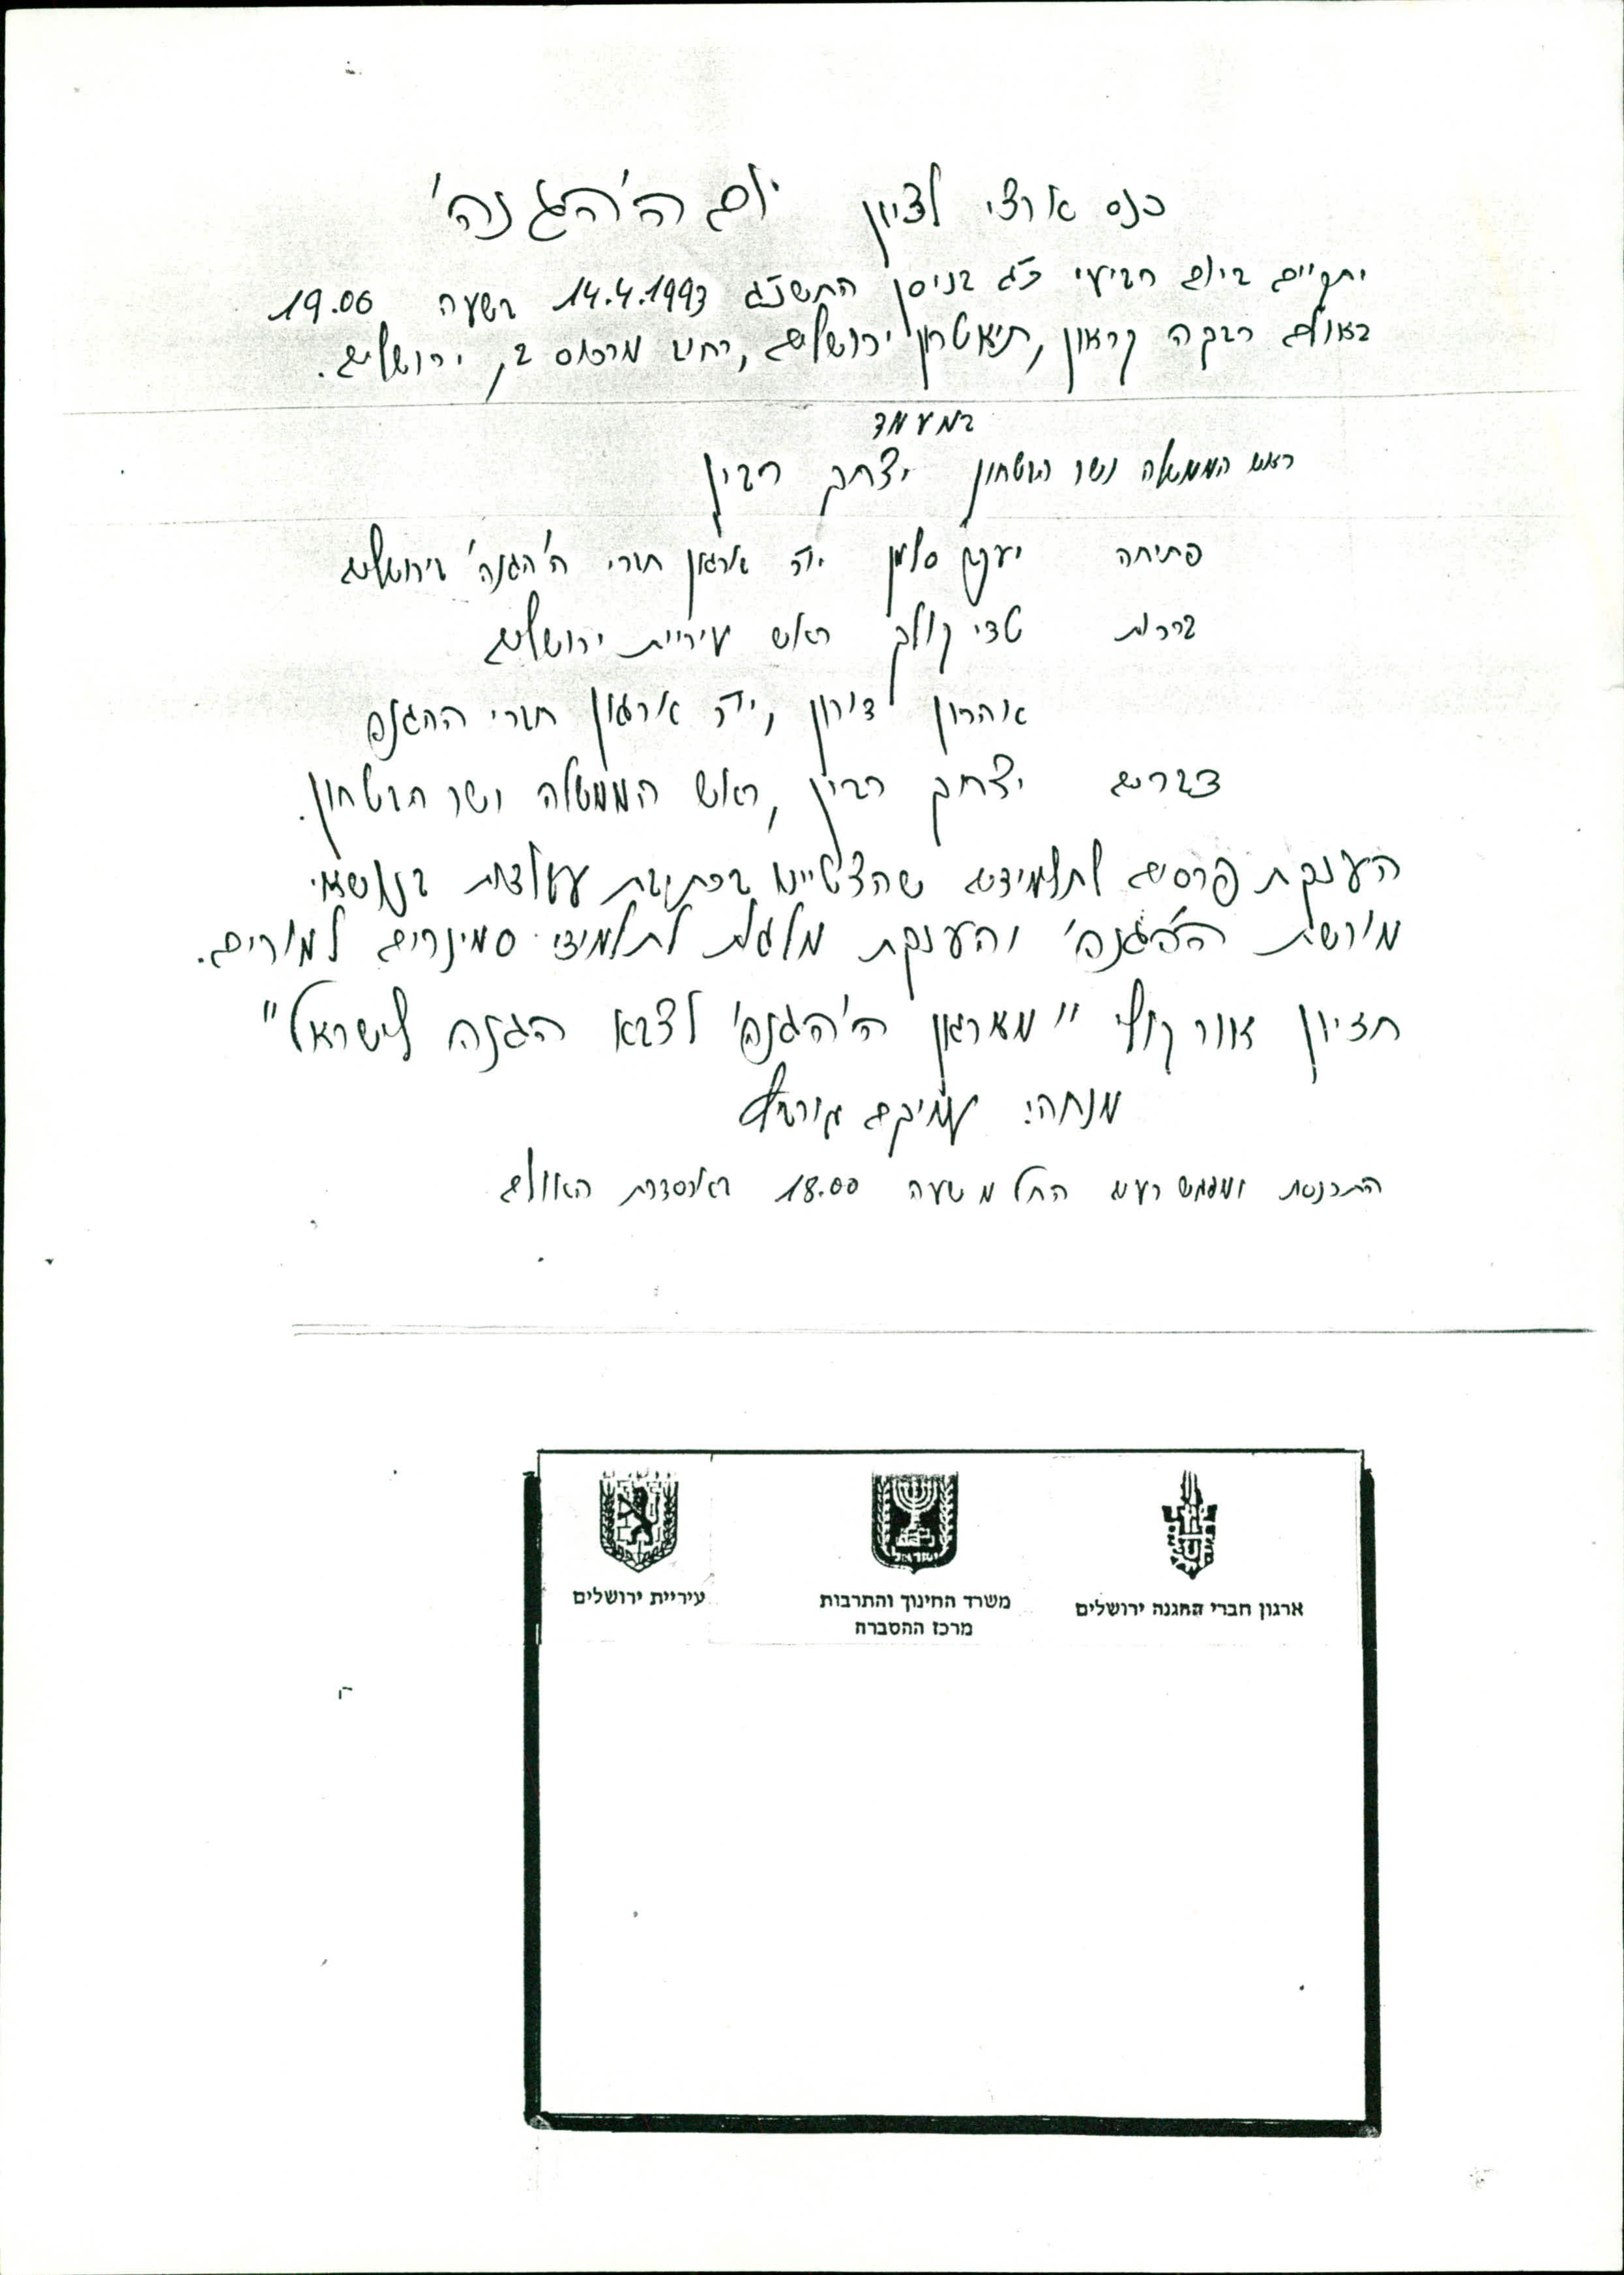 כנס ארצי לציון יום ה'הגנה'
יתקיים ביום רביעי כ"ג בניסן התשנ"ג 14.4.1993 בשעה 19.00
באולם רבקה קראון, תיאטרון ירושלים, רחוב מרכוס ירושלים.
במעמד
ראש הממשלה ושר הבטחון יצחק רבין
פתיחה יעקב סלמן יו"ר ארגון חברי ה'הגנה' בירושלים
ברכות טדי קולק ראש עיריית ירושלים
אהרון דורון, יו"ר ארגון חברי ההגנה
דברים יצחק רבין, ראש הממשלה ושר הבטחון.
הענקת פרסים לתלמידים שהצטיינו בכתיבת עבודות בנושאי
מורשת ה'הגנה' והענקת מלגות לתלמידי סמינרים למורים.
חזיון אור קולי "מארגון ה'הגנה' לצבא הגנה לישראל"
מנחה: עמיקם גורביץ
התכנסות ומפגש רעים החל משעה 18.00 באכסדרת האולם
ארגון חברי ההגנה ירושלים
משרד החינוך והתרבות
מרכז ההסברה
עיריית ירושלים
ישראל